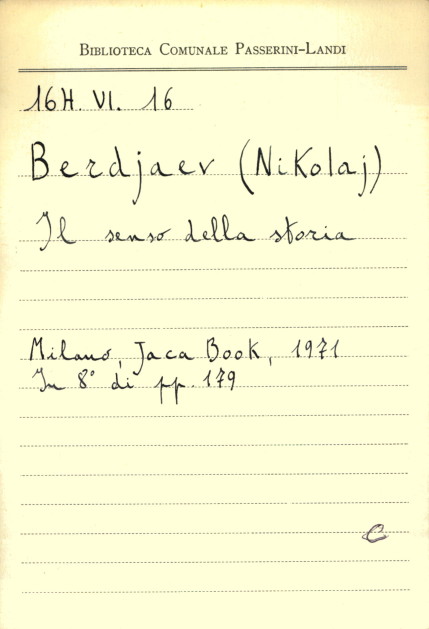 BIBLIOTECA COMUNALE PASSERINI-LANDI
16H. VI. 16
Berdjaev (Nikolaj)
Il senso della storia
Milano, Jaca Book, 1971
In 8° di pp. 179
C